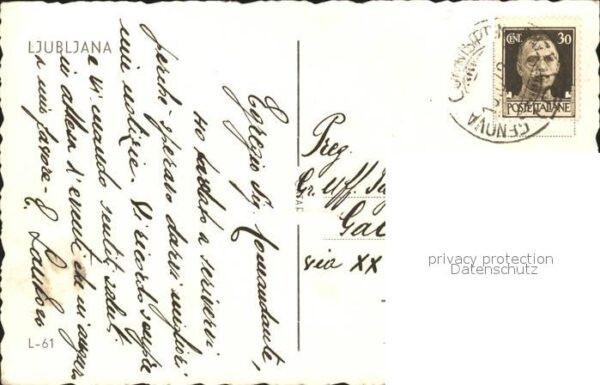 LJUBLJANA
Egregio Sig. Comandante,
ho tardato a scriverci
perché speravo darvi migliori
mie notizie. Vi ricordo sempre
e Vi mando sentiti saluti
in attesa d'eventi che mi auguro
a mio favore - E.
L-61
CENT. 30
POSTE ITALIANE
GENOVA
Preg.
Gr. Uff.
Ga
via XX
privacy protection
Datenschutz